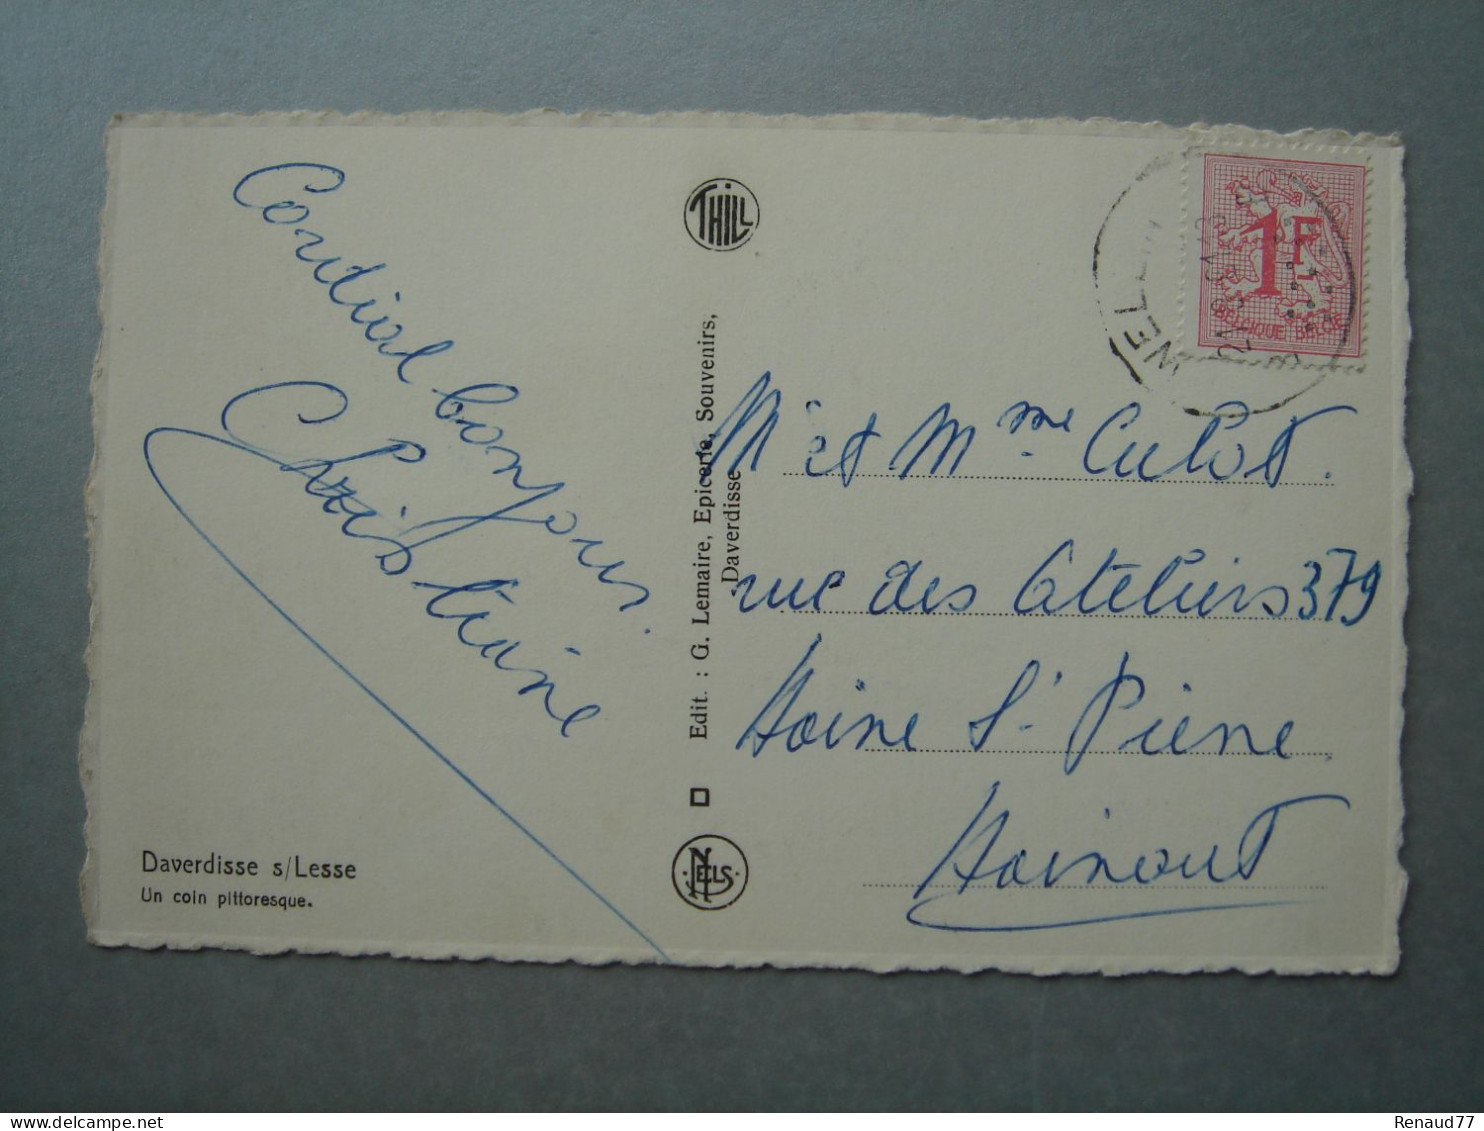 Cordial bonjour.
Christiane
Daverdisse s/Lesse
Un coin pittoresque.
THILL
Edit. : G. Lemaire, Epicerie, Souvenirs,
Daverdisse
NELS
1F
BELGIQUE BELGIE
M et Mme Culot.
rue des Ateliers 379
Haine St Pierre
Hainaut
Renaud77